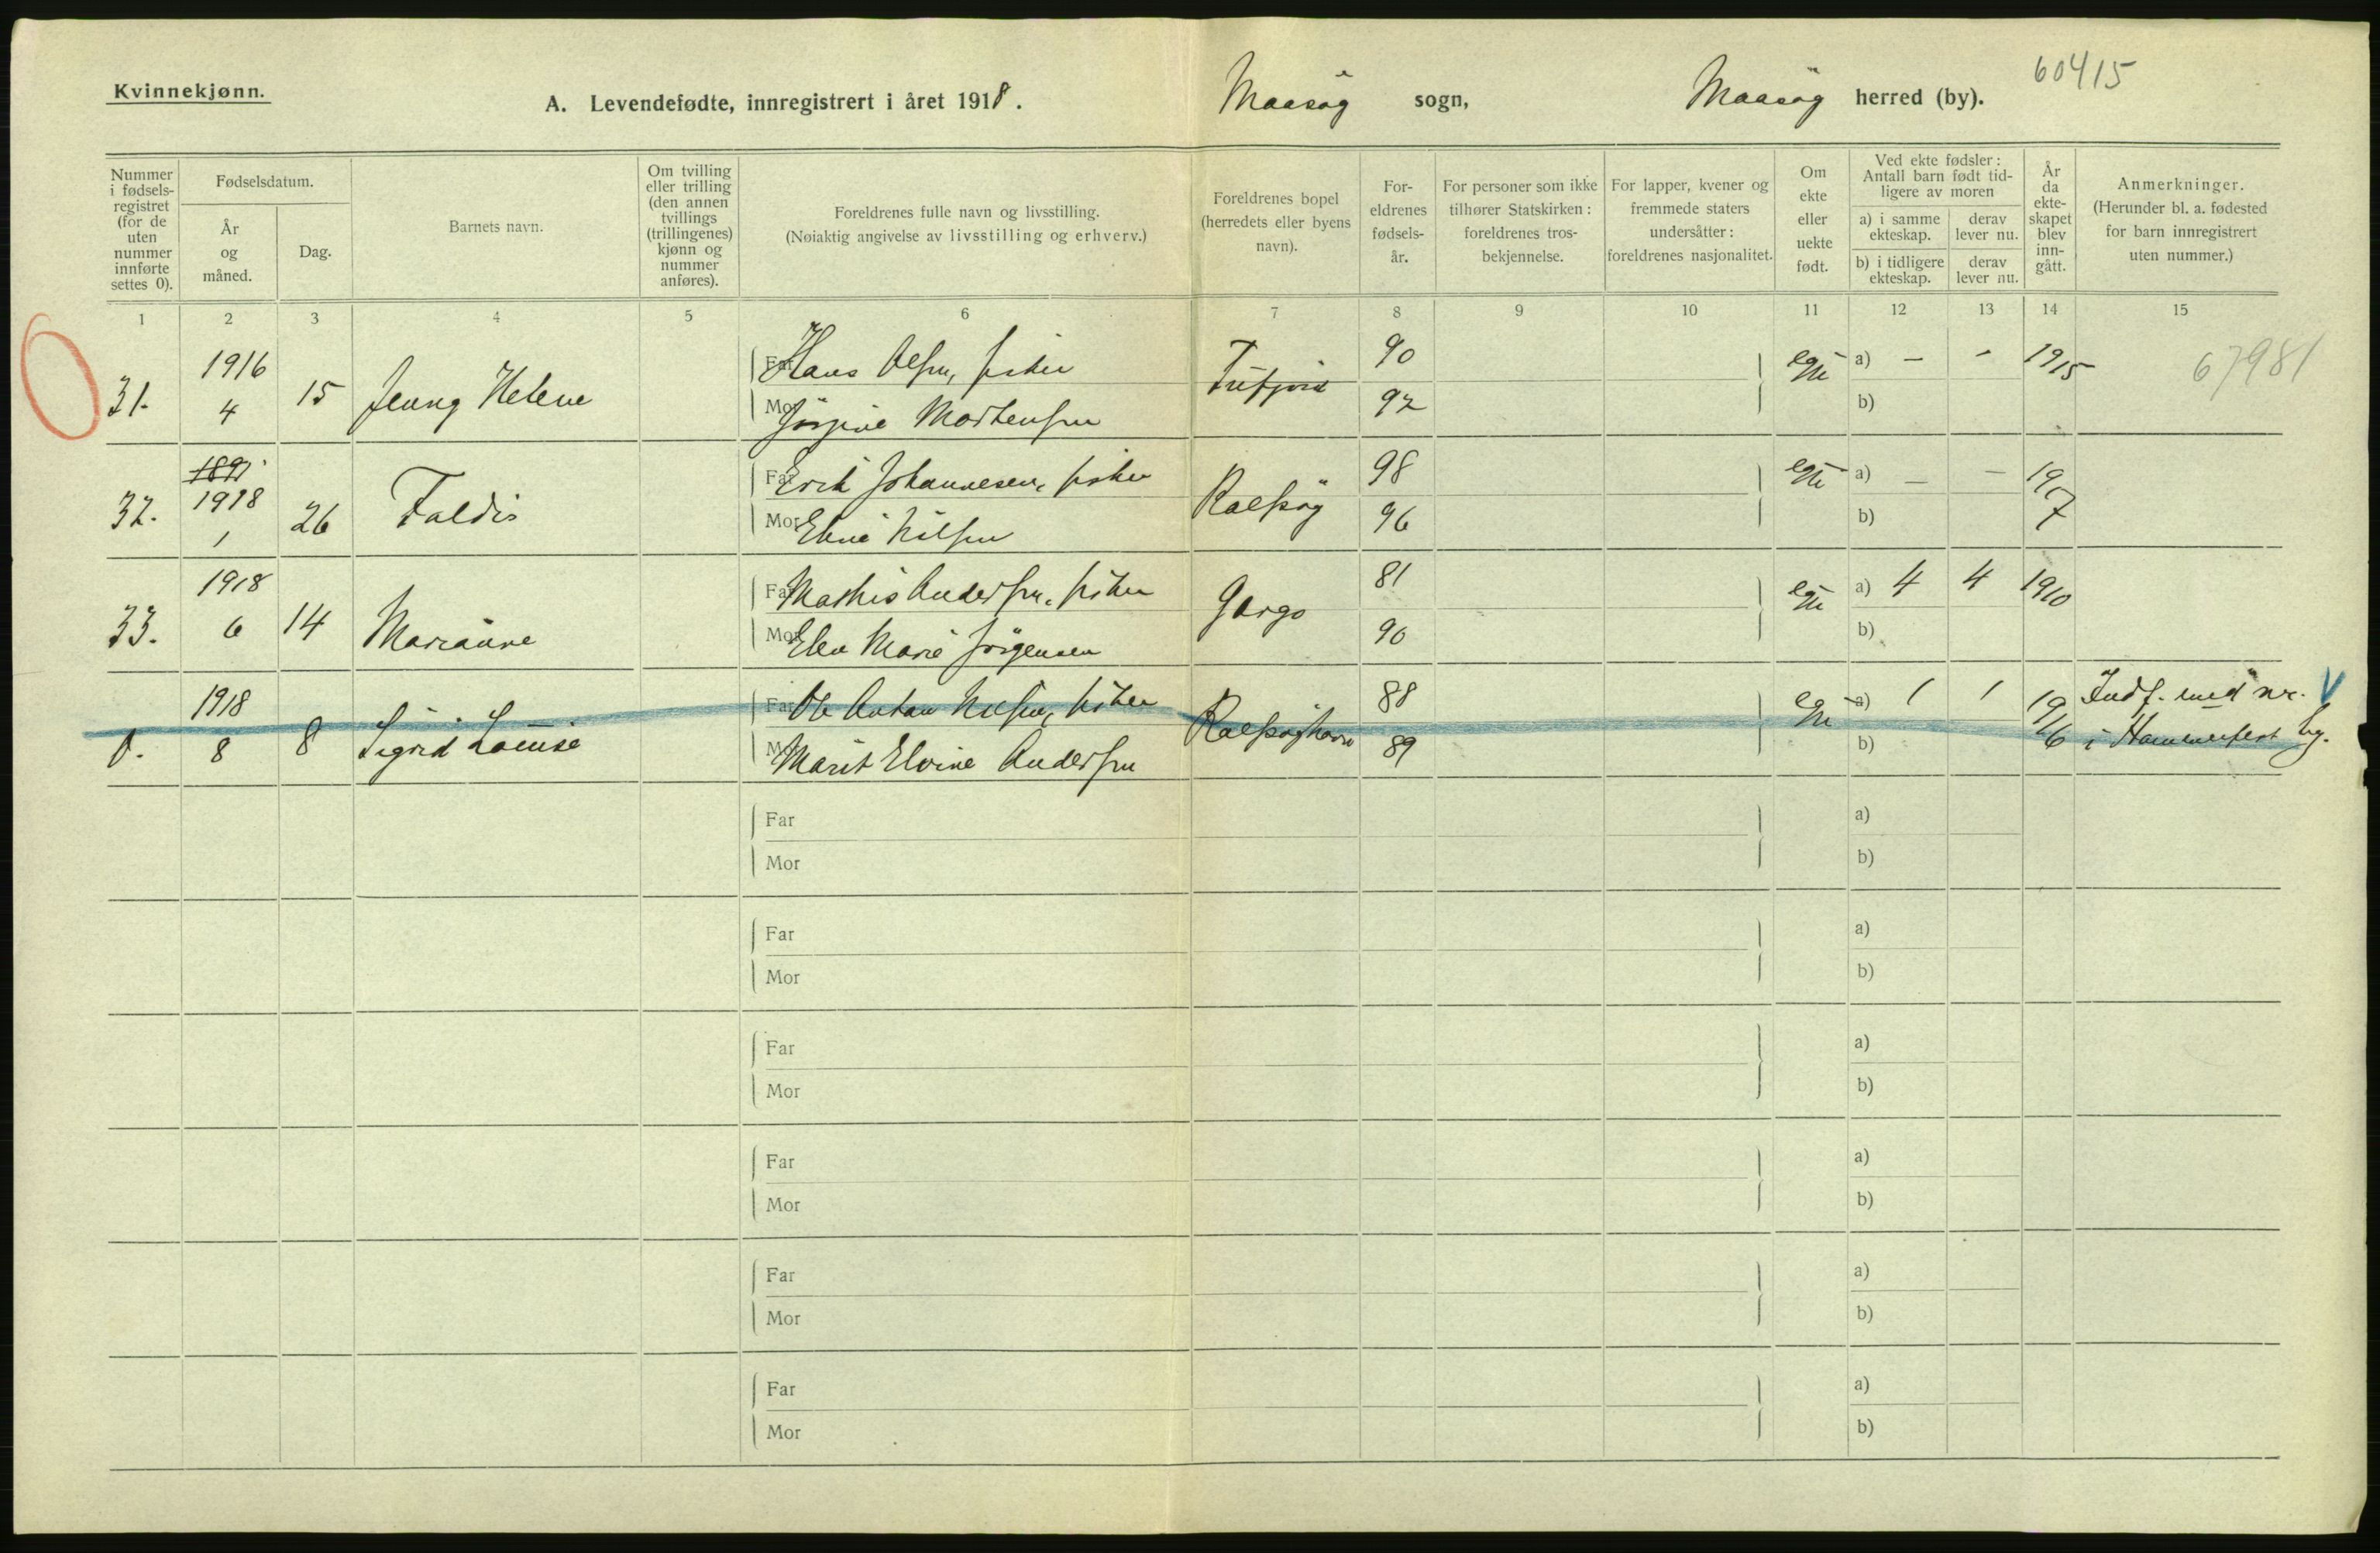 Kvinnekjønn.
A. Levendefødte, innregistrert i året 1918.
Maasøy sogn,
Maasøy herred (by).
60415
Nummer i fødsels-registret (for de uten nummer innførte settes 0).
Fødselsdatum.
År og måned.
Dag.
Barnets navn.
Om tvilling eller trilling (den annen tvillings (trillingenes) kjønn og nummer anføres).
Foreldrenes fulle navn og livsstilling.
(Nøiaktig angivelse av livsstilling og erhverv.)
Foreldrenes bopel (herredets eller byens navn).
For-eldrenes fødsels-år.
For personer som ikke tilhører Statskirken: foreldrenes tros-bekjennelse.
For lapper, kvener og fremmede staters undersåtter: foreldrenes nasjonalitet.
Om ekte eller uekte født.
Ved ekte fødsler: Antall barn født tid-ligere av moren
a) i samme ekteskap.
derav lever nu.
b) i tidligere ekteskap.
derav lever nu.
År da ekte-skapet blev inn-gått.
Anmerkninger.
(Herunder bl. a. fødested for barn innregistrert uten nummer.)
1 2 3 4 5 6 7 8 9 10 11 12 13 14 15
31. 1916 4 15 Jenny Helene
Far Hans Olsen, fisker
Mor Jørgine Mortensen
Tufjord 90 92 egte a) — - 1915 67981
b)
32. 1891 1918 1 26 Faldis
Far Erik Johannesen, fisker
Mor Eline Nilsen
Rolfsøy 98 96 egte a) — — 1917
b)
33. 1918 6 14 Marianne
Far Mathis Andersen, fisker
Mor Elen Marie Jørgensen
Gargo 81 90 egte a) 4 4 1910
b)
0. 1918 8 8 Sigrid Louise
Far Ole Anton Nilsen, fisker
Mor Marit Elvine Andersen
Rolfsøyhavn 88 89 egte a) 1 1 1916
b)
Indf. med nr. i Hammerfest by.
V
Far a)
Mor b)
Far a)
Mor b)
Far a)
Mor b)
Far a)
Mor b)
Far a)
Mor b)
Far a)
Mor b)